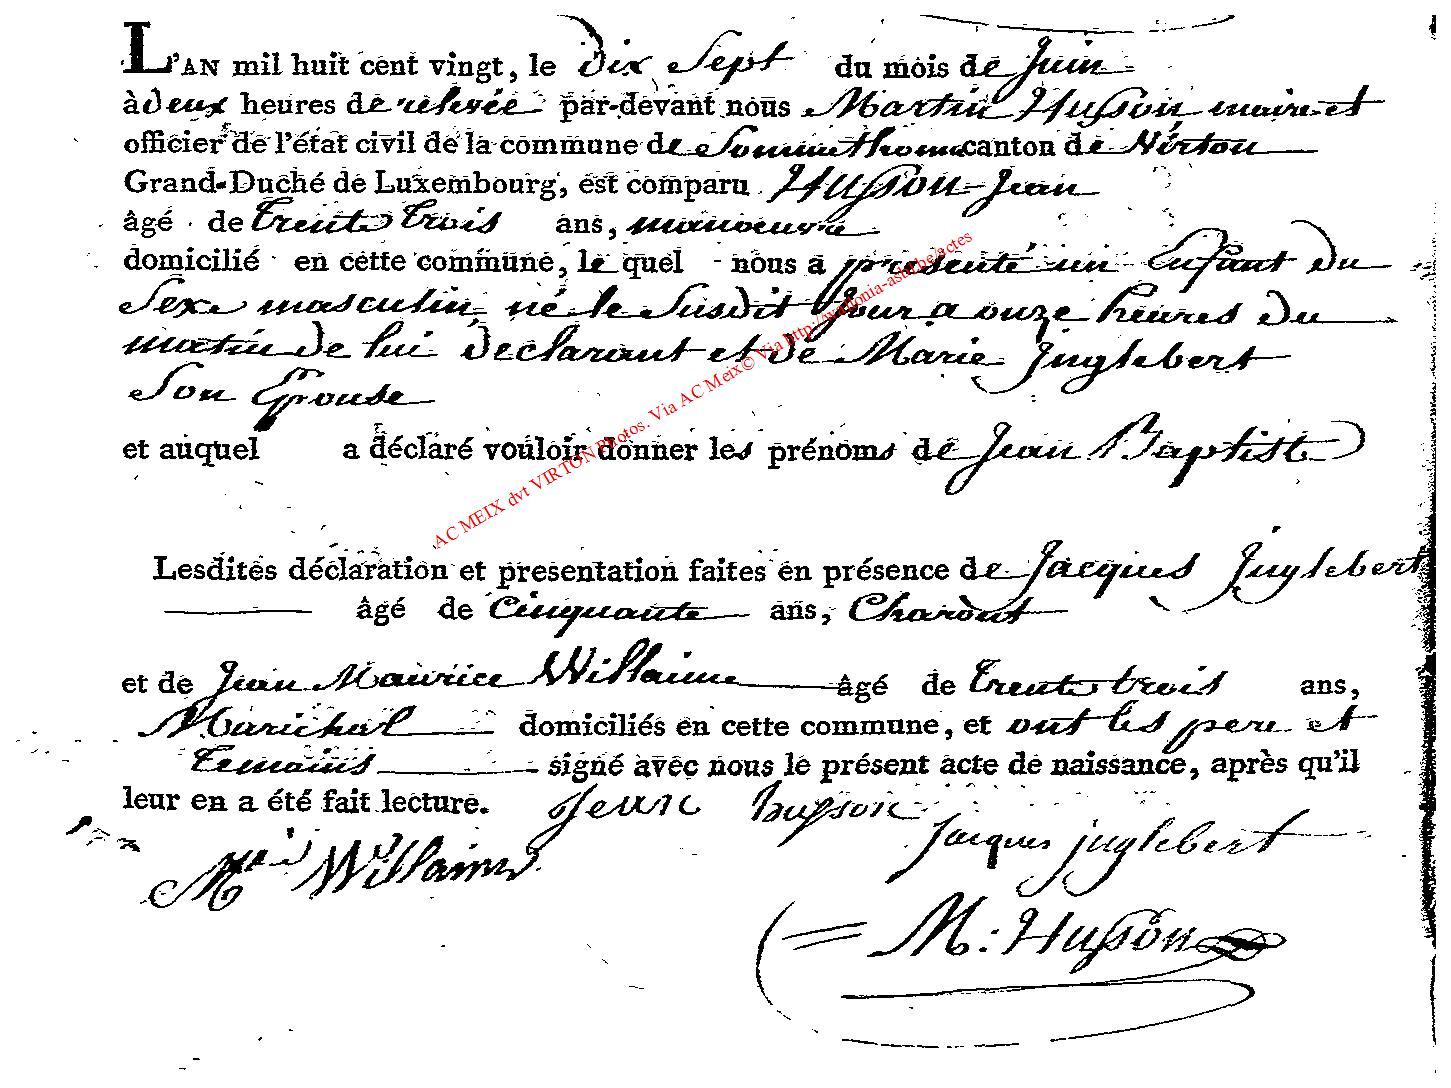 L'AN mil huit cent vingt, le dix Sept du mois de Juin
à deux heures de relevée par-devant nous Martin Husson maire et
officier de l'état civil de la commune de Sommethonne canton de Virton
Grand-Duché de Luxembourg, est comparu Husson Jean
âgé de trente trois ans, manoeuvre
domicilié en cette commune, le quel nous a présenté un Enfant du
Sexe masculin né le Susdit Jour a onze heures du
matin de lui déclarant et de Marie Juglebert
Son Epouse
et auquel a déclaré vouloir donner les prénoms de Jean Baptiste
AC MEIX dvt VIRTON Photos. Via AC Meix© Via http://wallonia-asbl.be/actes
Lesdites déclaration et presentation faites en présence de Jacques Juglebert
âgé de Cinquante ans, Charont
et de Jean Maurice Willaime âgé de trente trois ans,
Marichal domiciliés en cette commune, et ont les pere et
temains signé avec nous le présent acte de naissance, après qu'il
leur en a été fait lecture. Jean husson
Jacques juglebert
Willaime
M: Husson